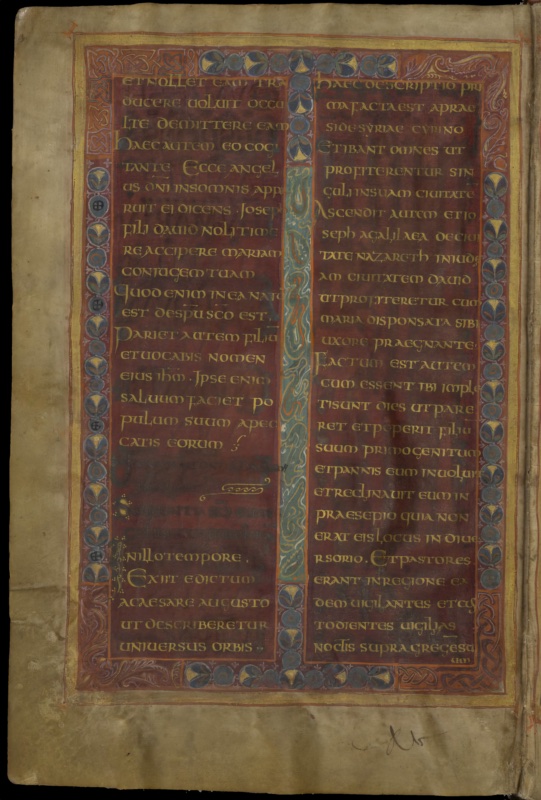 ET NOLLET EAM TRA
DUCERE UOLUIT OCCU
LTE DEMITTERE EAM
HAEC AUTEM EO COGI
TANTE ECCE ANGEL
US DNI IN SOMNIS APPA
RUIT EI DICENS IOSEP
FILI DAUID NOLI TIME
RE ACCIPERE MARIAM
CONIUGEM TUAM
QUOD ENIM IN EA NATU
EST DE SPU SCO EST
PARIET AUTEM FILIU
ET UOCABIS NOMEN
EIUS IHM IPSE ENIM
SALUUM FACIET PO
PULUM SUUM A PEC
CATIS EORUM
IN ILLO TEMPORE
EXIIT EDICTUM
A CAESARE AUGUSTO
UT DESCRIBERETUR
UNIUERSUS ORBIS
HAEC DESCRIPTIO PRI
MA FACTA EST A PRAE
SIDE SYRIAE CYRINO
ET IBANT OMNES UT
PROFITERENTUR SIN
GULI IN SUAM CIUITATE
ASCENDIT AUTEM ET IO
SEPH A GALILAEA DE CIUI
TATE NAZARETH IN IUDE
AM CIUITATEM DAUID
UT PROFITERETUR CUM
MARIA DISPONSATA SIBI
UXORE PRAEGNANTE
FACTUM EST AUTEM
CUM ESSENT IBI IMPLE
TI SUNT DIES UT PARE
RET ET PEPERIT FILIU
SUUM PRIMOGENITUM
ET PANNIS EUM INUOLUIT
ET RECLINAUIT EUM IN
PRAESEPIO QUIA NON
ERAT EIS LOCUS IN DIUE
RSORIO ET PASTORES
ERANT IN REGIONE EA
DEM UIGILANTES ET CUS
TODIENTES UIGILIAS
NOCTIS SUPRA GREGE SU
UM